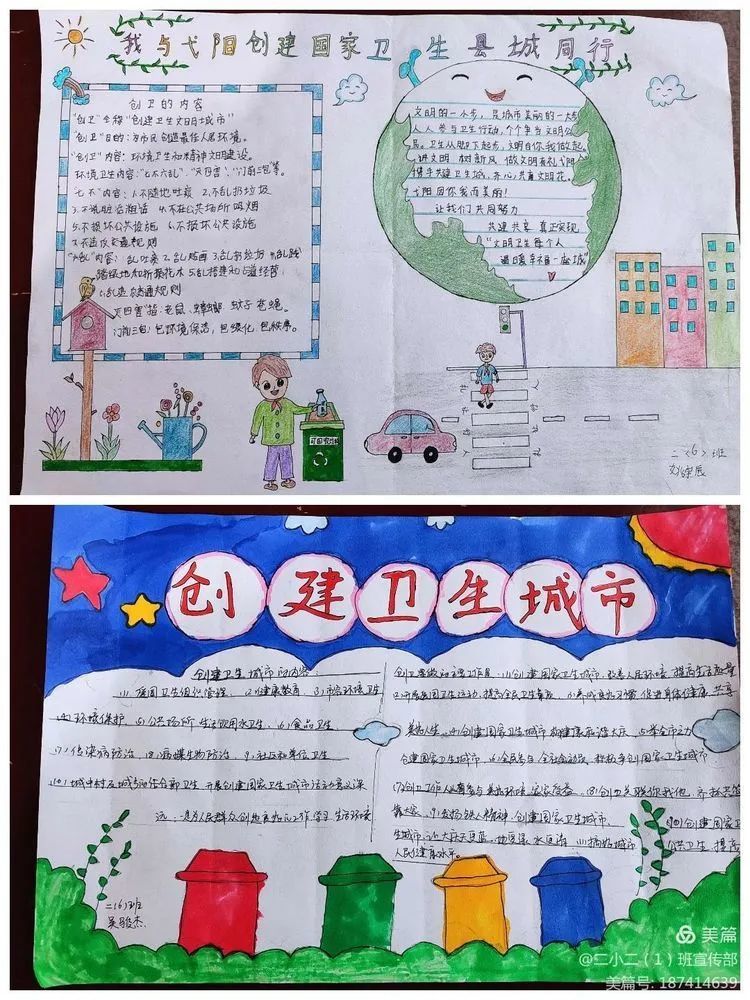 我与弋阳创建国家卫生县城同行
创卫的内容
"创卫"全称"创建卫生文明城市"
"创卫"目的:为市民创造最佳人居环境。
"创卫"内容:环境卫生和精神文明建设。
环境卫生内容:"七不六乱"、"灭四害"、"门前三包等。
"七不"内容:1.不随地吐痰 2.不乱扔垃圾
3.不说脏话粗话 4.不在公共场所吸烟
5.不损坏公共设施
7.不违反交通规则
"六乱"内容:乱吐
踏绿地和折摘花木 5.乱搭建和
6.乱违交通规则
灭四害指:老鼠、蟑螂 蚊子 苍蝇。
门前三包:包环境保洁,包绿化,包秩序。
文明的一小步,是城市美丽的一大步
人人参与卫生行动,个个争当文明公
民。卫生从脚下起步,文明由你我做起。
讲文明 树新风 做文明有礼弋阳人
携手共建卫生城,齐心共育文明花。
弋阳因你我而美丽!
让我们共同努力
共建共享 真正实现
"文明卫生每个人
温暖幸福一座城
可回收物
二(6)班
创建卫生城市
创建卫生城市的内容:
(1)、爱国卫生组织管理、(2)健康教育 (3)市容环境卫生
(4)环境保护、(5)公共场所 生活饮用水卫生、(6)食品卫生
(7)传染病防治、(8)病媒生物防治、(9)社区和单位卫生
(10)城中村及城乡结合部卫生 开展创建国家卫生城市活动意义深
远,是为人民群众创造良好的工作 学习 生活环境
(1)创建国家卫生城市,改善人居环境,提高生活质量
(2)开展爱国卫生运动,提高全民卫生素质 (3)养成良好习惯 促进身体健康 共享
美好人生、(4)创建国家卫生城市 构建和谐大庆 (5)举全市之力
创建国家卫生城市
(8)创卫关联你我他,齐抓共管
靠大家、(9)发扬铁人精神,创建国家卫生城市
(10)创建国家卫生
生城市,还大庆天更蓝、地更绿、水更清 (11)搞好城市
公共卫生 提高
人民健康水平。
二(6)班
吴骏杰
美篇
@二小二(1)班宣传部
美篇号: 187414639